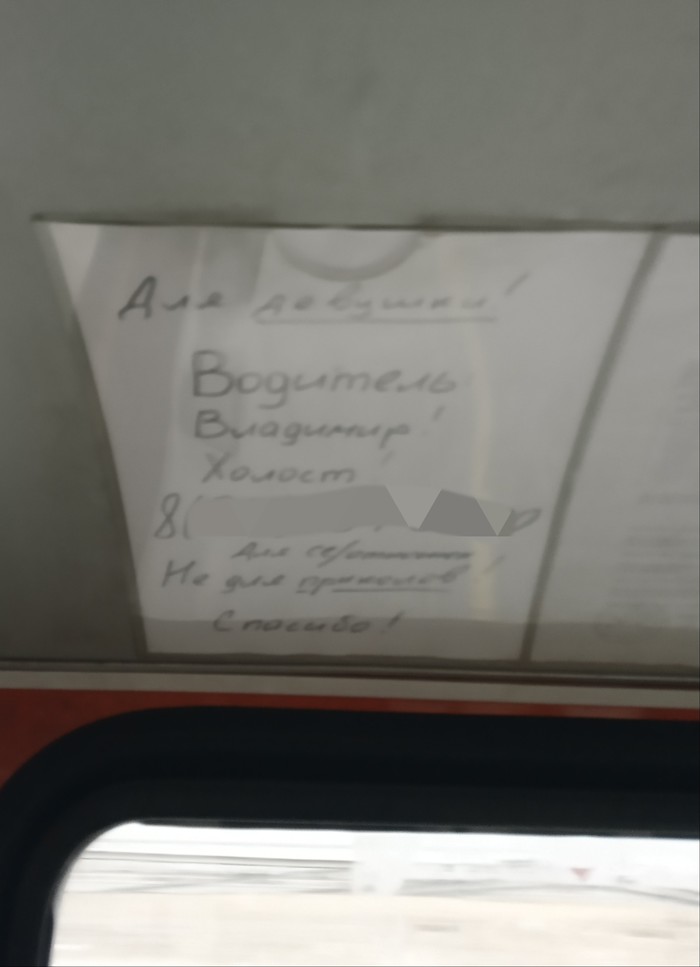 Для девушки!
Водитель
Владимир!
Холост!
8(
Для с/отношений
Не для приколов!
Спасибо!